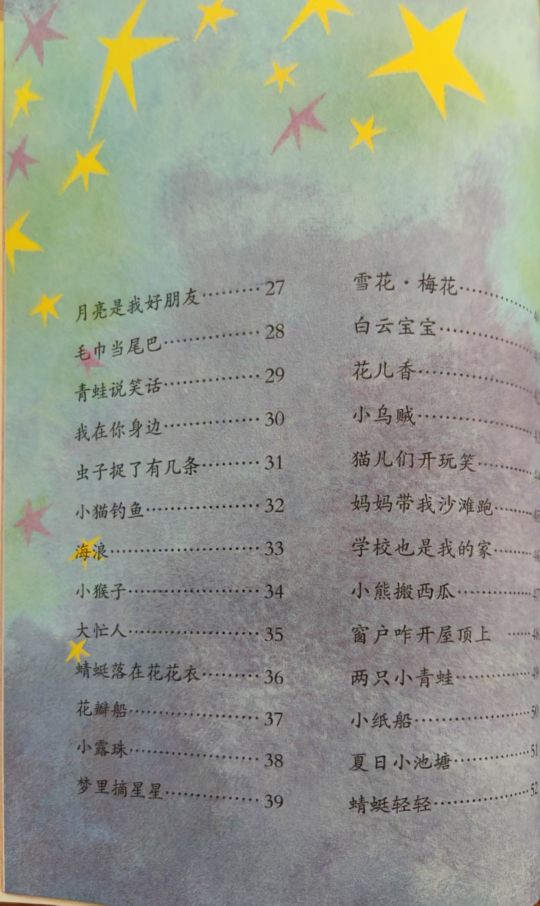 月亮是我好朋友………27
毛巾当尾巴………28
青蛙说笑话………29
我在你身边………30
虫子捉了有几条………31
小猫钓鱼………32
海浪………33
小猴子………34
大忙人………35
蜻蜓落在花花衣………36
花瓣船………37
小露珠………38
梦里摘星星………39
雪花·梅花………
白云宝宝………
花儿香………
小乌贼………
猫儿们开玩笑………44
妈妈带我沙滩跑………45
学校也是我的家………46
小熊搬西瓜………47
窗户咋开屋顶上……48
两只小青蛙………49
小纸船………50
夏日小池塘………51
蜻蜓轻轻………52